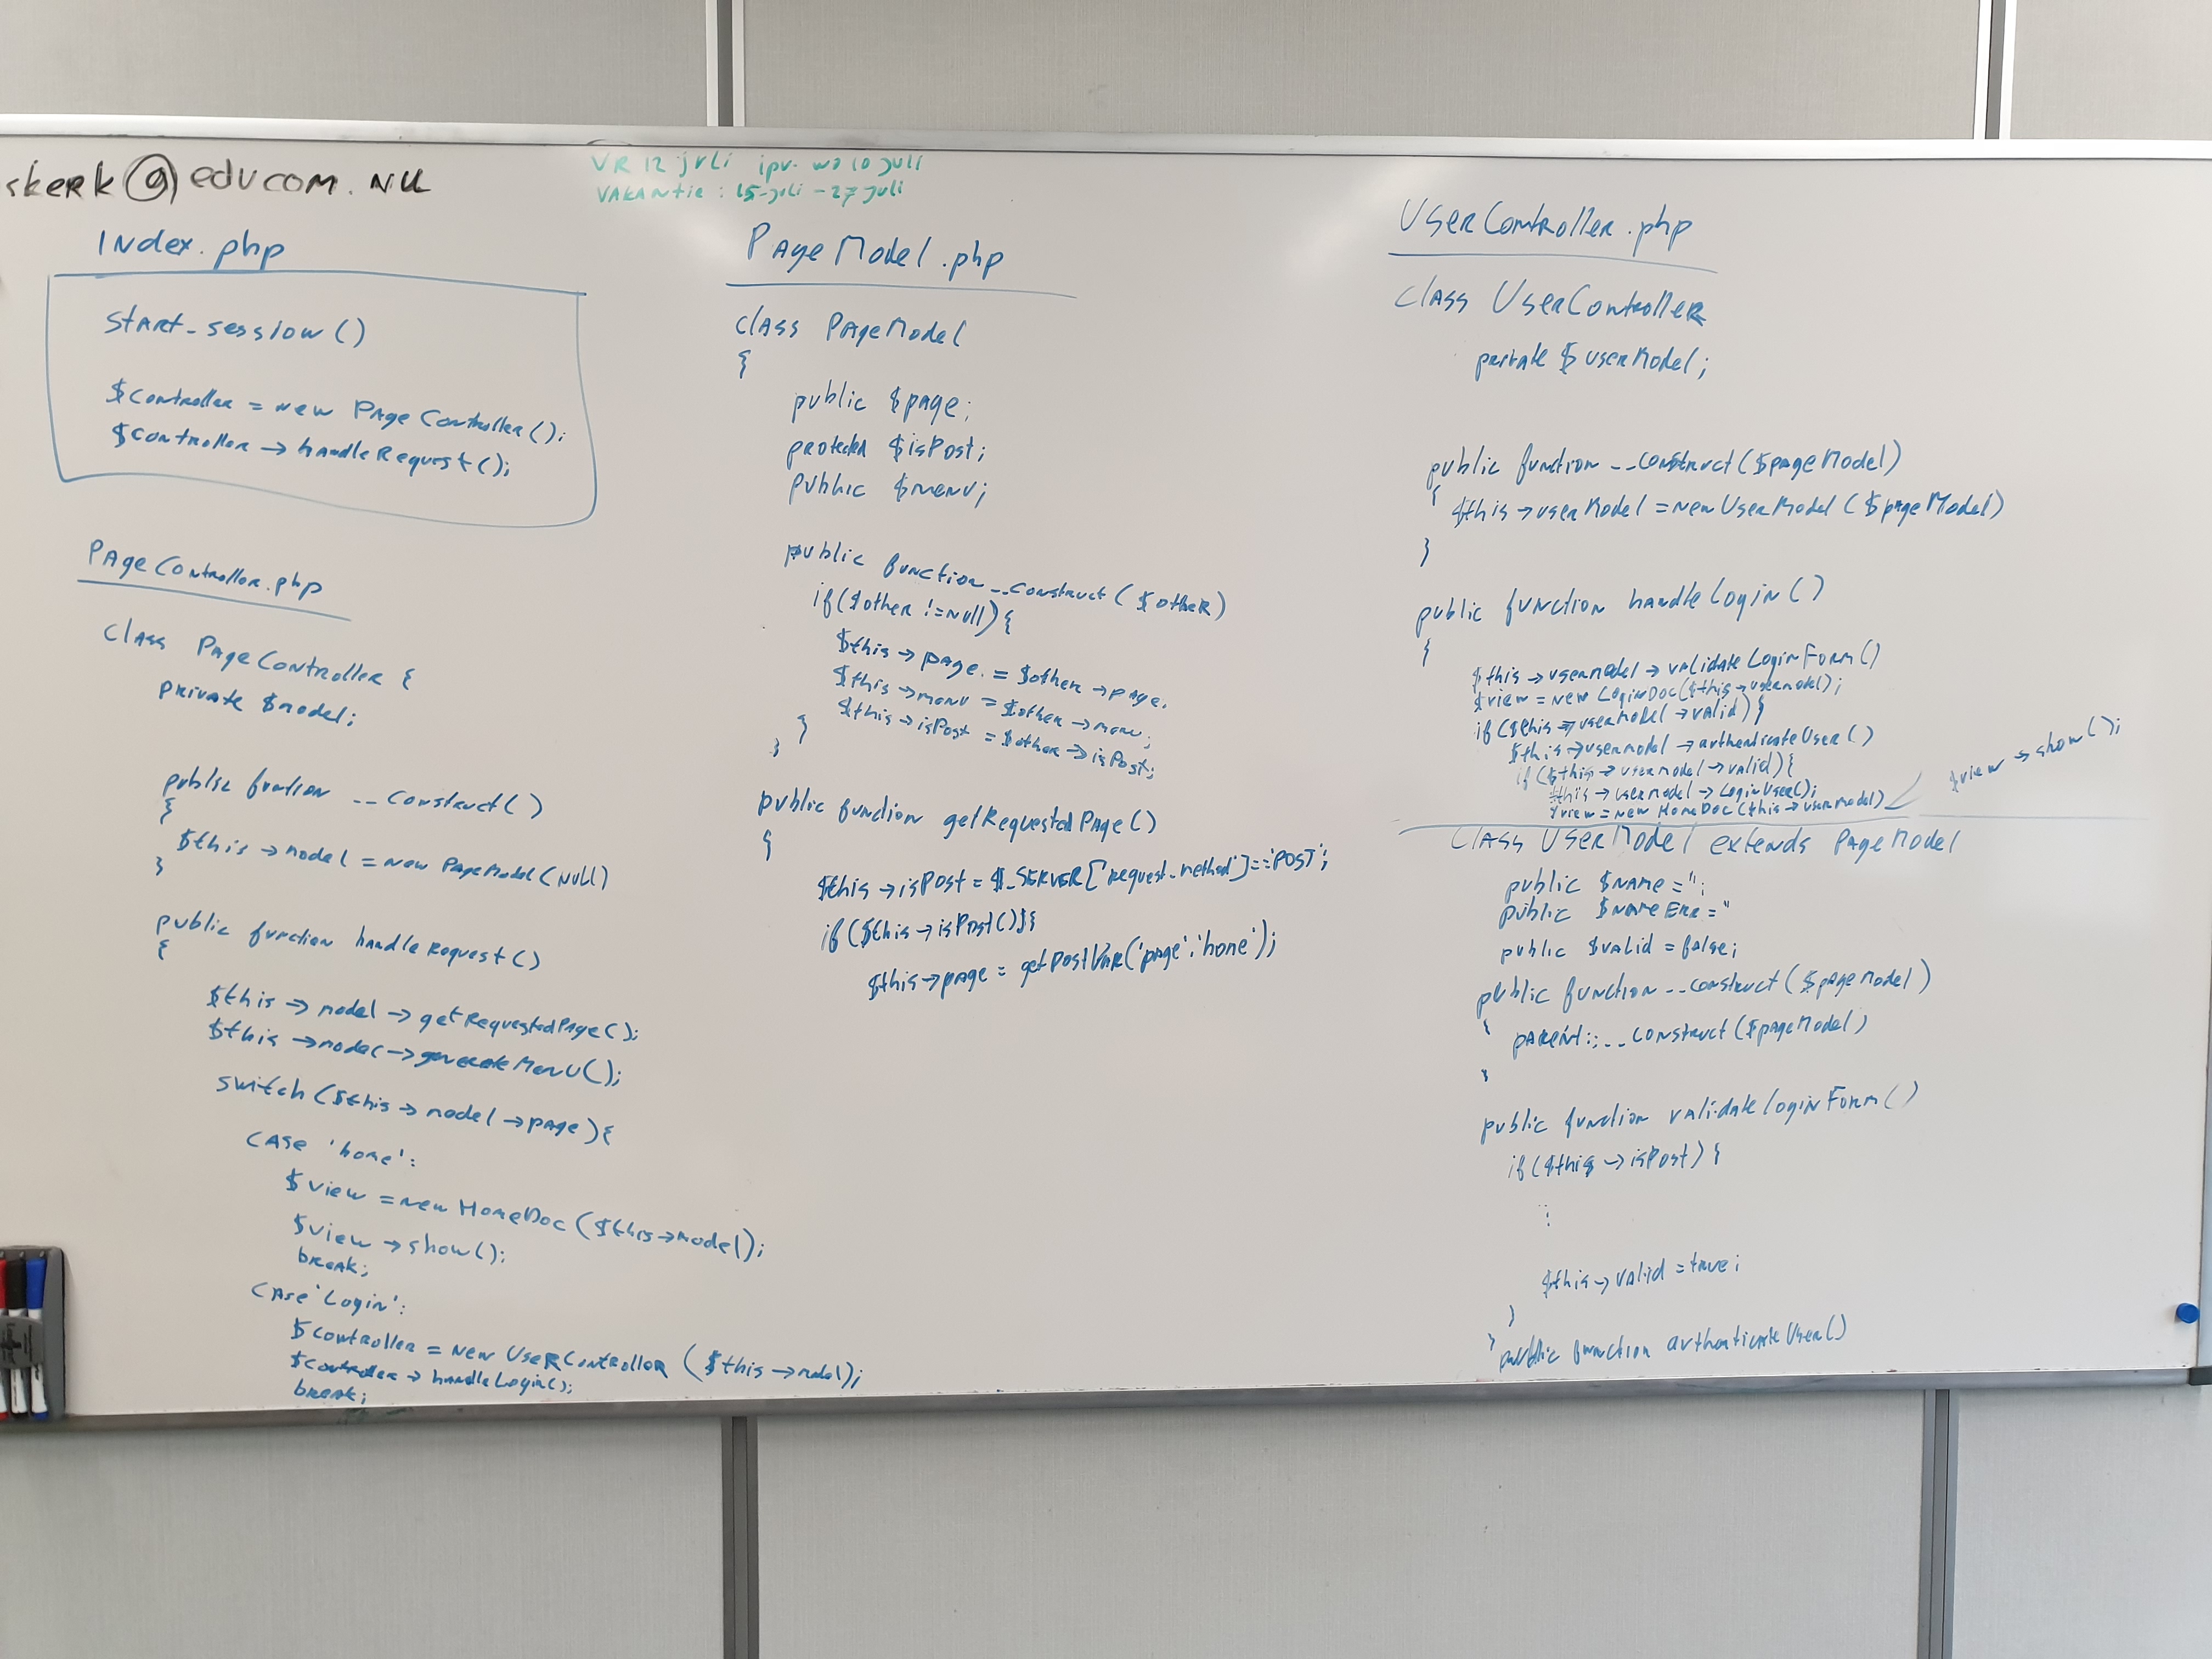 skerk@educom.nu
VR 12 juli ipv. wo 10 juli
VAKANTIE : 15-juli - 27 juli
Index.php
start_session()
$controller = new PageController();
$controller->handleRequest();
PageController.php
class PageController {
private $model;
public function __construct()
{
$this->model = new PageModel(Null)
}
public function handleRequest()
{
$this->model->getRequestedPage();
$this->model->generateMenu();
switch($this->model->page){
case 'home':
$view = new HomeDoc($this->model);
$view->show();
break;
case 'Login':
$controller = new UserController ($this->model);
$controller->handleLogin();
break;
PageModel.php
class PageModel
{
public $page;
protected $isPost;
public $menu;
public function __construct($other)
if($other != Null){
$this->page. = $other->page.
$this->menu = $other->menu;
$this->isPost = $other->isPost;
}
}
public function getRequestedPage()
{
$this->isPost = $_SERVER['request_method']=='POST';
if($this->isPost()){
$this->page = getPostVar('page','home');
UserController.php
class UserController
private $userModel;
public function __construct($pageModel)
{
$this->userModel = new UserModel($pageModel)
}
public function handleLogin()
{
$this->usermodel->validateLoginForm()
$view = new LoginDoc($this->usermodel);
if($this->usermodel->valid){
$this->usermodel->authenticateUser()
if($this->usermodel->valid){
$this->usermodel->LoginUser();
$view = new HomeDoc($this->usermodel)
$view->show();
class UserModel extends PageModel
public $name = '';
public $nameErr = ''
public $valid = false;
public function __construct($pageModel)
{
PARENT::__construct($pageModel)
}
public function validateLoginForm()
if($this->isPost){
:
$this->valid = true;
}
} public function authenticateUser()